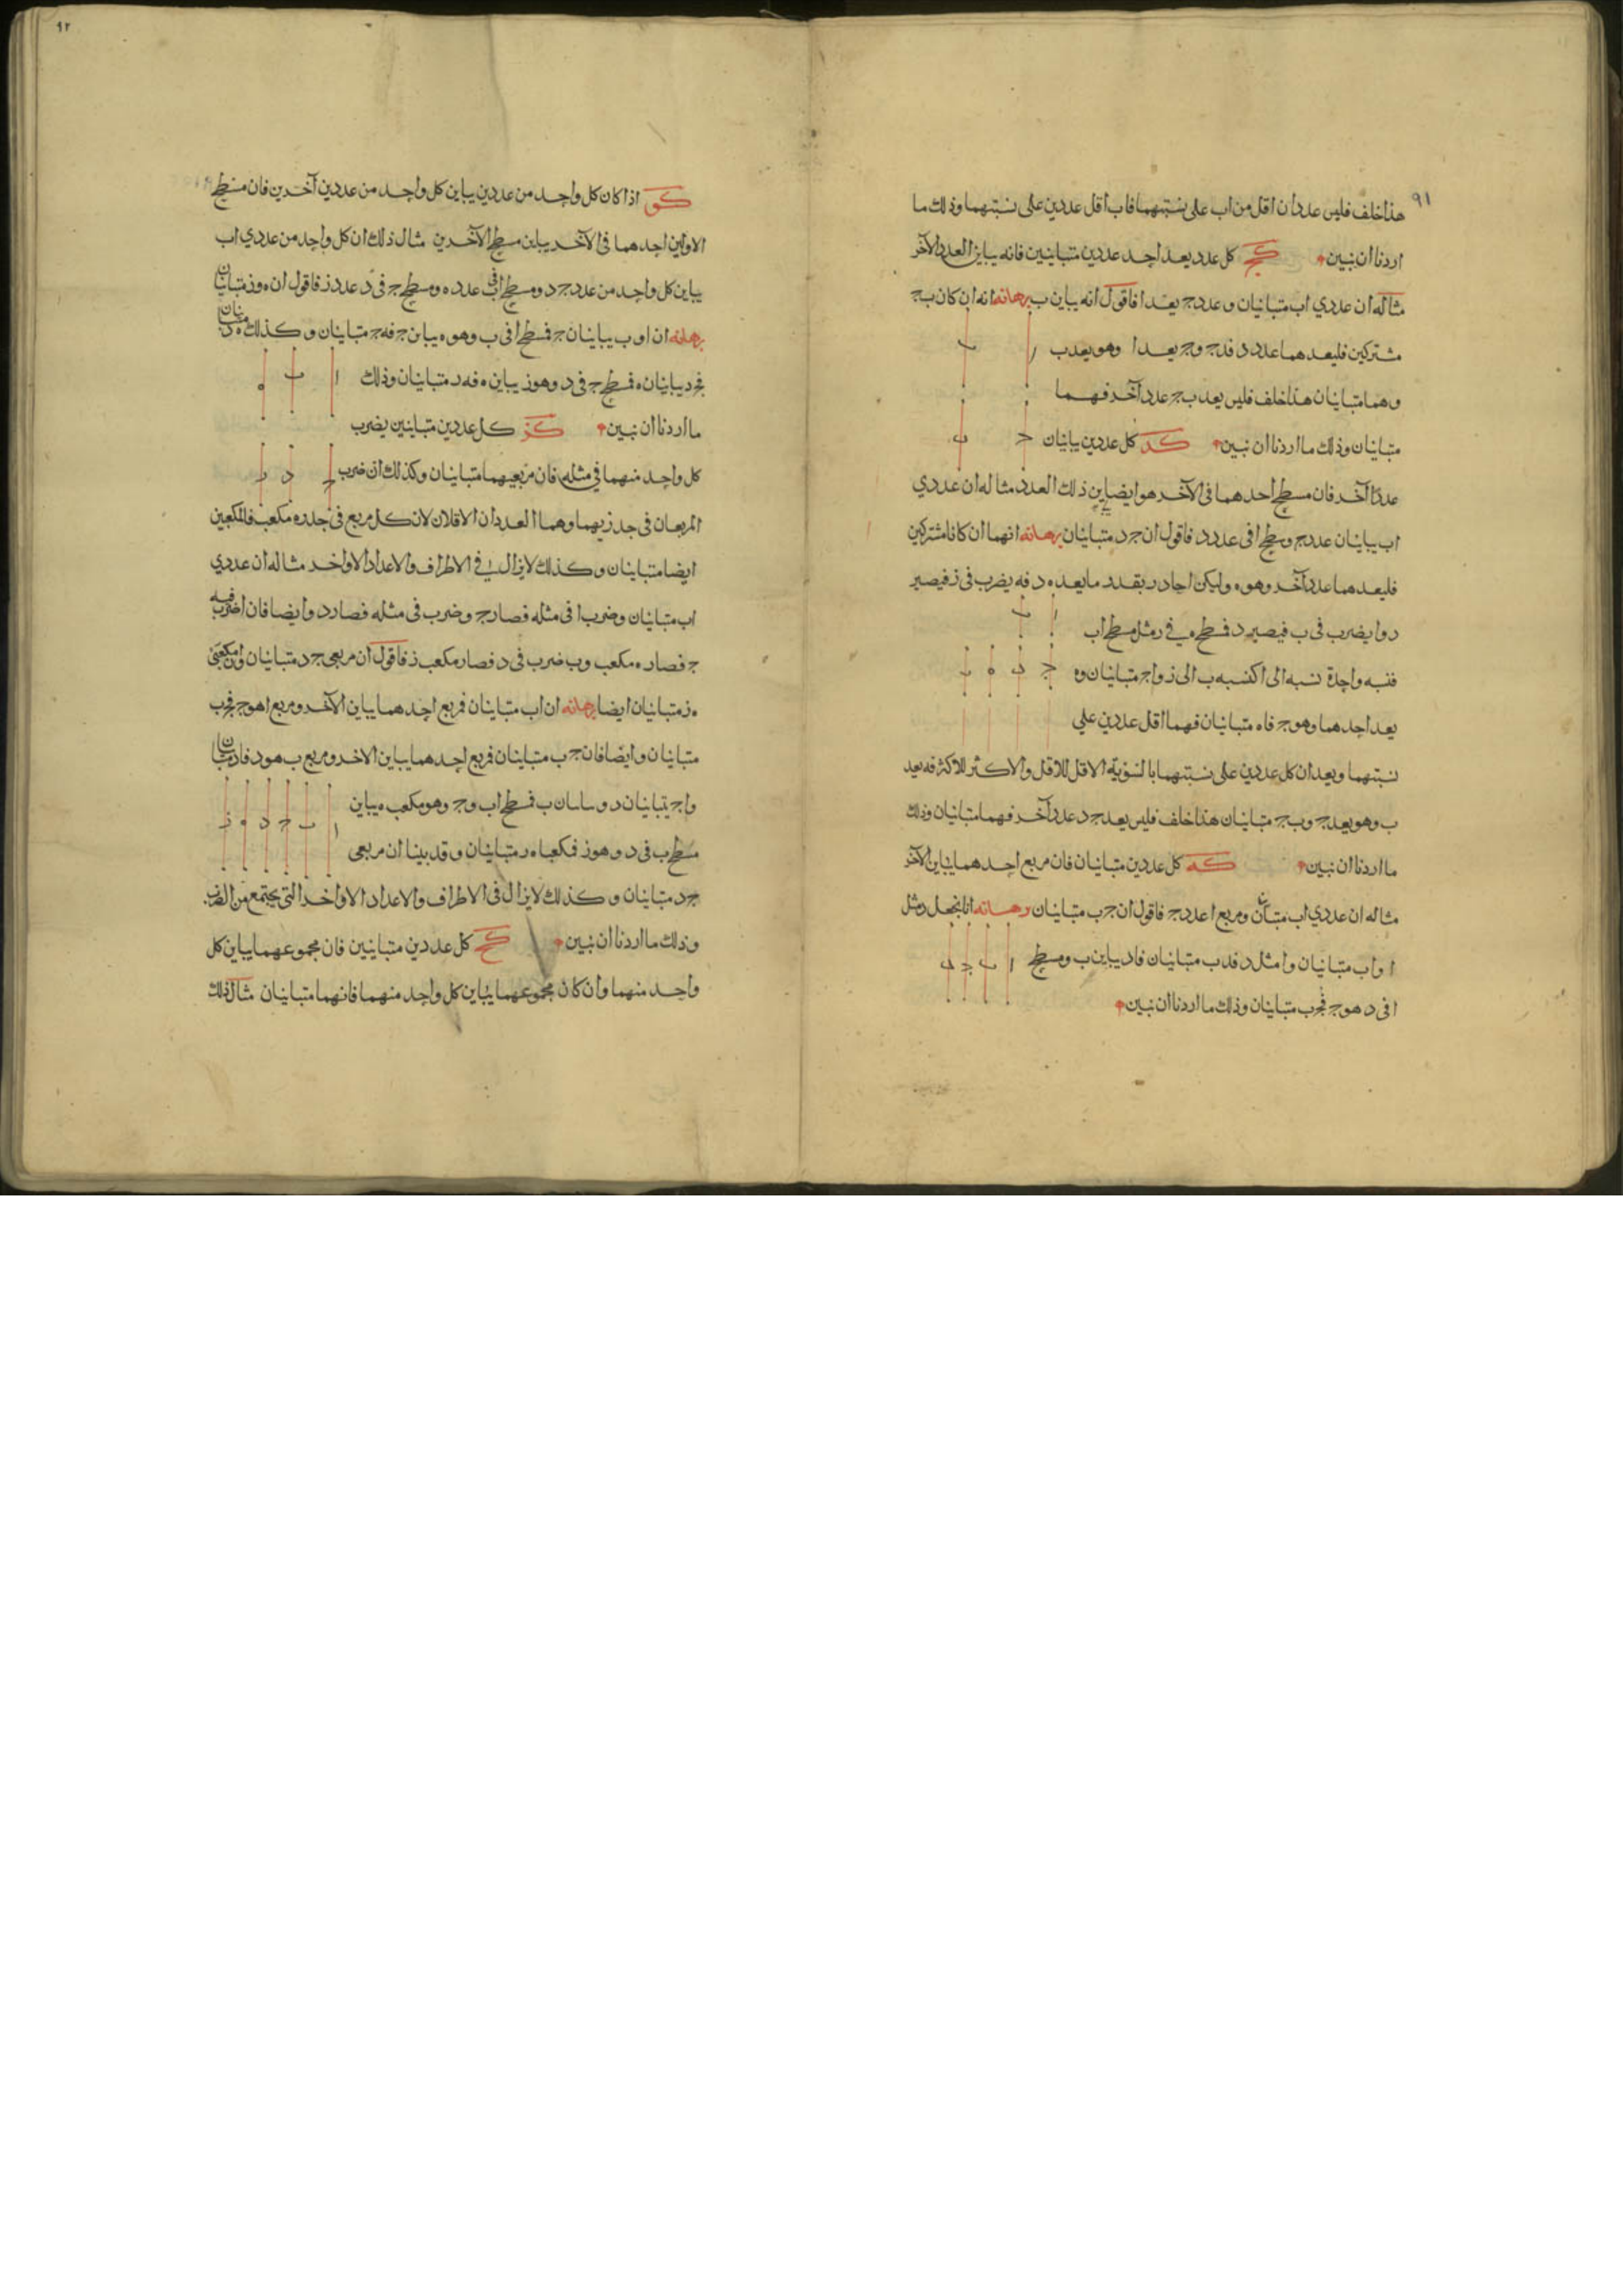 ٩١
هذا خلف فليس عددان اقل من اب على نسبتهما فاب اقل عددين على نسبتهما وذلك ما
اردنا ان نبين كج كل عدد يعد احد عددين متباينين فانه يباين العدد الآخر
مثاله ان عددي اب متباينان وعدد ج يعد ا فاقول انه يباين ب برهانه انه ان كان ب ج
مشتركين فليعدهما عدد د فد ج وج يعد ا وهو يعد ب
وهما متباينان هذا خلف فليس يعد ب ج عدد آخر فهما
متباينان وذلك ما اردنا ان نبين كد كل عددين يباينان
عددا آخر فان مسطح احدهما في الآخر هو ايضا يباين ذلك العدد مثاله ان عددي
اب يباينان عدد ج ومسطح ا في عدد د فاقول ان ج د متباينان برهانه انهما ان كانا مشتركين
فليعدهما عدد آخر وهو ه وليكن احاد ر بقدر ما يعد ه د فه يضرب في ز فيصير
د وا يضرب في ب فيصير د فسطح ه في ر مثل مسطح اب
فنسبه واحدة نسبه ا الى ا كنسبه ب الى ز واج متباينان وه
يعد احدهما وهو ج فاه متباينان فهما اقل عددين علي
نسبتهما ويعدان كل عددين على نسبتهما بالسوية الاقل للاقل والاكثر للاكثر فه يعد
ب وهو يعد ج وب ج متباينان هذا خلف فليس يعد ج د عدد آخر فهما متباينان وذلك
ما اردنا ان نبين كه كل عددين متباينان فان مربع احدهما يباين الآخر
مثاله ان عددي اب متباينان ومربع ا عدد ج فاقول ان ج ب متباينان برهانه انا نجعل د مثل
ا واب متباينان وا مثل د فد ب متباينان فاد يباين ب ومسطح
ا في د هو ج فج ب متباينان وذلك ما اردنا ان نبين
٩٢
كو اذا كان كل واحد من عددين يباين كل واحد من عددين آخرين فان مسطح
الاولين احدهما في الآخر يباين مسطح الآخرين مثال ذلك ان كل واحد من عددي اب
يباين كل واحد من عدد ج د ومسطح ا في ب عدد ه ومسطح ج في د عدد ز فاقول ان ه وز متباينان
برهانه ان ا وب يباينان ج فسطح ا في ب وهو ه يباين ج فه ج متباينان وكذلك ه د متباينان
فج د يباينان ه فسطح ج في د وهو ز يباين ه فه ر متباينان وذلك
ما اردنا ان نبين كز كل عددين متباينين يضرب
كل واحد منهما في مثله فان مربعيهما متباينان وكذلك ان ضرب
المربعان في جذريهما وهما العددان الاقلان لان كل مربع في جذره مكعب فالمكعبين
ايضا متباينان وكذلك لا يزال في الاطراف والاعداد الاواخر مثاله ان عددي
اب متباينان وضرب ا في مثله فصار ج وضرب في مثله فصار د وايضا فان ا ضرب في
ج فصار ه مكعب وب ضرب في د فصار مكعب ز فاقول ان مربعي ج د متباينان وان مكعبي
ه ز متباينان ايضا برهانه ان اب متباينان فربع احدهما يباين الآخر ومربع ا هو ج فج ب
متباينان وايضا فان ج ب متباينان فربع احدهما يباين الاخر ومربع ب هو د فاد متباينان
واج يتباينان د فسطح اب وج وهو مكعب ه يباين
مسطح ب في د وهو ز فمكعبا ه ر متباينان وقد بينا ان مربعي
ج د متباينان وكذلك لا يزال في الاطراف والاعداد الاواخر التي يجتمع من الضرب
وذلك ما اردنا ان نبين كح كل عددين متباينين فان مجموعهما يباين كل
واحد منهما وان كان مجموعهما يباين كل واحد منهما فانهما متباينان مثال ذلك